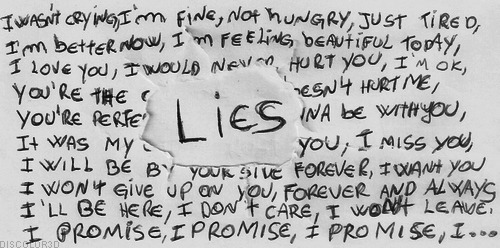 I WASN'T CRYING, I'm FINE, NOT HUNGRY, JUST TIRED,
I'm better NOW, I'm FEELING beAUTIFUL TODAY,
I LOVE YOU, I WOULD NEVER HURT YOU, I'M OK,
YOU'RE THE HURT ME,
YOU'RE be WITH YOU,
LiES
IT WAS MY YOU, I MISS YOU,
I WILL BE BY YOUR SIDE FOREVER, I WANT YOU
I WON'T GIVE UP ON YOU, FOREVER AND ALWAYS
I'LL BE HERE, I DON'T CARE, I WON'T LEAVE.
I PROMISE, I PROMISE, I PROMISE, I...
DISCOLOR3D